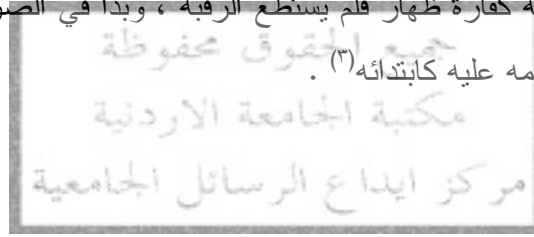 ـه كفارة ظهار فلم يستطع الرقبة ، وبدا في الصو
مه عليه كابتدائه(٣) .
جميع الحقوق محفوظة
مكتبة الجامعة الاردنية
مركز ايداع الرسائل الجامعية